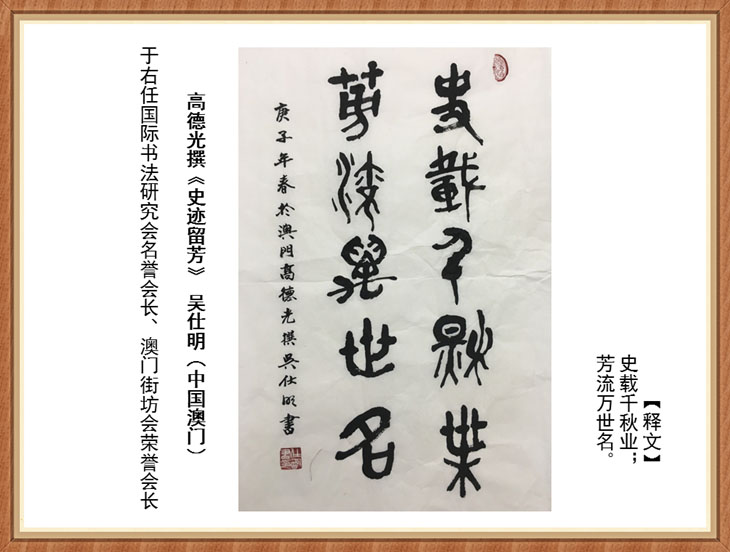 【释文】
史载千秋业；
芳流万世名。
史载千秋业
芳流万世名
庚子年春於澳門高德光撰吳仕明書
高德光撰《史迹留芳》 吴仕明（中国澳门）
于右任国际书法研究会名誉会长、澳门街坊会荣誉会长